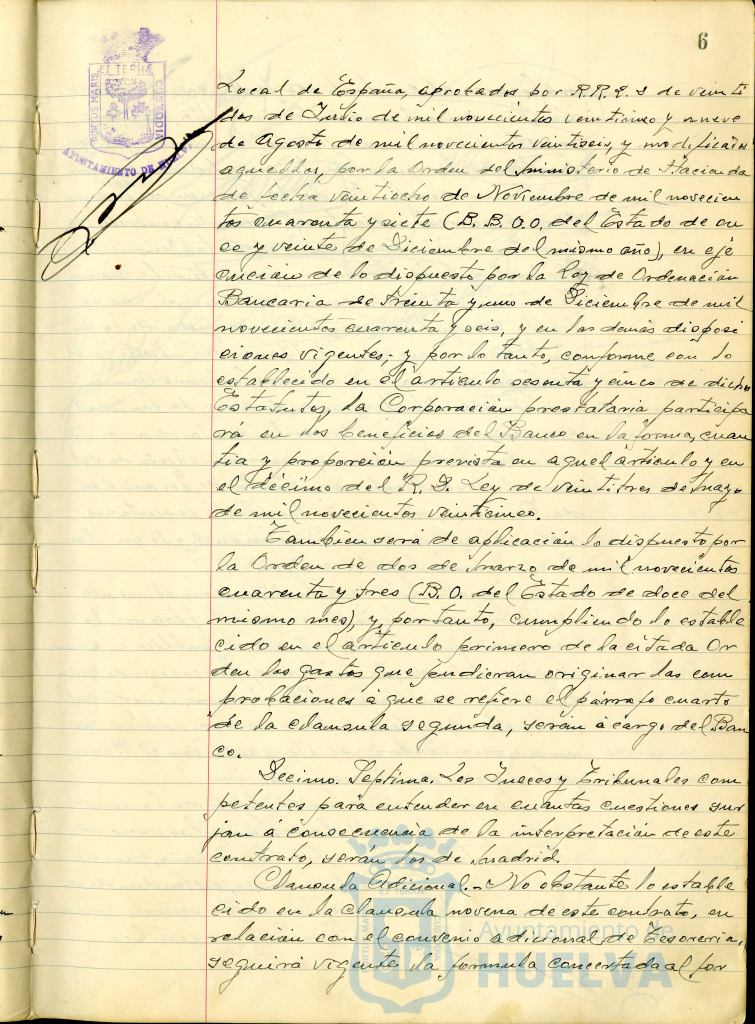 6
PORTUS MARIS ET TERRÆ CUSTODIA
AYUNTAMIENTO DE HUELVA
Local de España, aprobados por R.R. D. D de veinti
dos de Julio de mil novecientos veinticinco y nueve
de Agosto de mil novecientos veintiseis, y modificados
aquellos, por la Orden del Ministerio de Hacienda
de fecha veintiocho de Noviembre de mil novecien
tos cuarenta y siete (B.B.O.O. del Estado de on
ce y veinte de Diciembre del mismo año), en eje
cución de lo dispuesto por la Ley de Ordenación
Bancaria de treinta y uno de Diciembre de mil
novecientos cuarenta y seis, y en las demás disposi
ciones vigentes; y por lo tanto, conforme con lo
establecido en el artículo sesenta y cinco de dichos
Estatutos, la Corporación prestataria participa
rá en los beneficios del Banco en la forma, cuan
tia y proporción prevista en aquel artículo y en
el décimo del R. D. Ley de veintitres de Mayo
de mil novecientos veinticinco.
Tambien será de aplicación lo dispuesto por
la Orden de dos de Marzo de mil novecientos
cuarenta y tres (B.O. del Estado de doce del
mismo mes), y, por tanto, cumpliendo lo estable
cido en el artículo primero de la citada Or
den los gastos que pudieran originar las com
probaciones á que se refiere el párrafo cuarto
de la clausula segunda, serán á cargo del Ban
co.
Decimo. Septima. Los Jueces y Tribunales com
petentes para entender en cuantas cuestiones sur
jan á consecuencia de la interpretación de este
contrato, serán los de Madrid.
Clausula Adicional.- No obstante lo estable
cido en la clausula novena de este contrato, en
relación con el convenio adicional de Tesoreria,
seguirá vigente la formula concertada al for
Ayuntamiento de
HUELVA